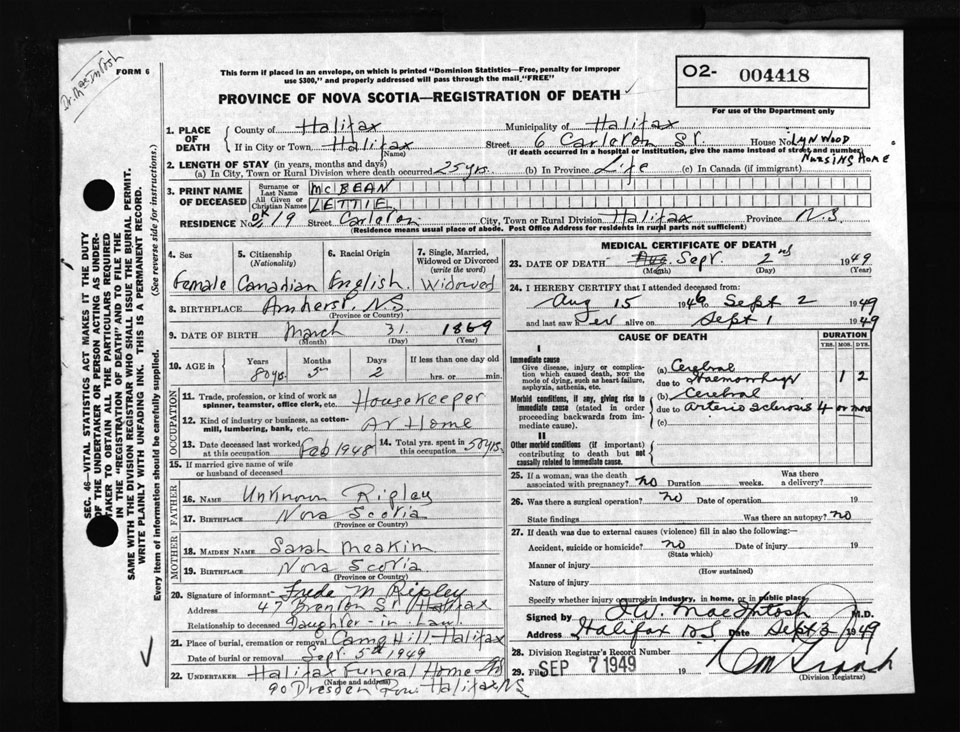 Dr. MacIntosh
FORM 6
This form if placed in an envelope, on which is printed "Dominion Statistics—Free, penalty for improper
use $300," and properly addressed will pass through the mail "FREE"
PROVINCE OF NOVA SCOTIA—REGISTRATION OF DEATH
O2- 004418
For use of the Department only
1. PLACE OF DEATH
County of Halifax Municipality of Halifax
If in City or Town Halifax (Name) Street 6 Carleton St. House No. Lynwood
(If death occurred in a hospital or institution, give the name instead of street and number)
Nursing Home
2. LENGTH OF STAY (in years, months and days)
(a) In City, Town or Rural Division where death occurred 25 yrs. (b) In Province Life (c) In Canada (if immigrant)
3. PRINT NAME OF DECEASED
Surname or Last Name McBEAN
All Given or Christian Names LETTIE
RESIDENCE No. 19 Street Carleton City, Town or Rural Division Halifax Province N.S.
(Residence means usual place of abode. Post Office Address for residents in rural parts not sufficient)
4. Sex Female
5. Citizenship (Nationality) Canadian
6. Racial Origin English
7. Single, Married, Widowed or Divorced (write the word) Widowed
8. BIRTHPLACE Amherst, N.S.
(Province or Country)
9. DATE OF BIRTH March 31. 1869
(Month) (Day) (Year)
10. AGE in Years 80 yrs. Months 5 Days 2 If less than one day old hrs. or min.
OCCUPATION
11. Trade, profession, or kind of work as spinner, teamster, office clerk, etc. Housekeeper
12. Kind of industry or business, as cotton-mill, lumbering, bank, etc. At Home
13. Date deceased last worked at this occupation Feb 1948 14. Total yrs. spent in this occupation 50 yrs.
15. If married give name of wife or husband of deceased
FATHER
16. NAME Unknown Ripley
17. BIRTHPLACE Nova Scotia
(Province or Country)
MOTHER
18. MAIDEN NAME Sarah Meakim
19. BIRTHPLACE Nova Scotia
(Province or Country)
20. Signature of informant Freda M Ripley
Address 47 Brenton St Halifax
Relationship to deceased Daughter-in-Law
21. Place of burial, cremation or removal Camp Hill-Halifax
Date of burial or removal Sept. 5th 1949
22. UNDERTAKER Halifax Funeral Home
(Name and address)
90 Dresden Row Halifax NS
MEDICAL CERTIFICATE OF DEATH
23. DATE OF DEATH Aug. Sept. 2nd 1949
(Month) (Day) (Year)
24. I HEREBY CERTIFY that I attended deceased from:
Aug 15 1949 to Sept 2 1949
and last saw her alive on Sept 1 1949
CAUSE OF DEATH
DURATION
YRS. MOS. DYS.
I
Immediate cause
Give disease, injury or complication which caused death, NOT the mode of dying, such as heart failure, asphyxia, asthenia, etc.
(a) Cerebral
due to Haemorrhage 1 2
Morbid conditions, if any, giving rise to immediate cause (stated in order proceeding backwards from immediate cause).
(b) Cerebral
due to Arterio Sclerosis 4 or more
(c)
II
Other morbid conditions (if important) contributing to death but not causally related to immediate cause.
25. If a woman, was the death associated with pregnancy? no Duration weeks. Was there a delivery?
26. Was there a surgical operation? no Date of operation 19
State findings Was there an autopsy? no
27. If death was due to external causes (violence) fill in also the following:—
Accident, suicide or homicide? no Date of injury 19
(State which)
Manner of injury
(How sustained)
Nature of injury
Specify whether injury occurred in industry, in home, or in public place
Signed by J.W. MacIntosh M.D.
Address Halifax N.S. Date Sept 3 1949
28. Division Registrar's Record Number
29. Filed SEP 7 1949 19
(Division Registrar)
SEC. 46—VITAL STATISTICS ACT MAKES IT THE DUTY
OF THE UNDERTAKER OR PERSON ACTING AS UNDER-
TAKER TO OBTAIN ALL THE PARTICULARS REQUIRED
IN THE "REGISTRATION OF DEATH" AND TO FILE THE
SAME WITH THE DIVISION REGISTRAR WHO SHALL ISSUE THE BURIAL PERMIT.
WRITE PLAINLY WITH UNFADING INK. THIS IS A PERMANENT RECORD.
Every item of information should be carefully supplied. (See reverse side for instructions.)